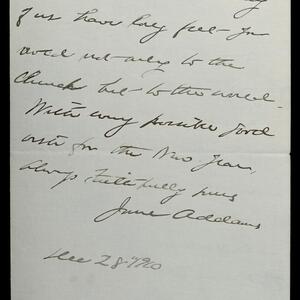 of us have long felt - you
avail not only to the
Church but to the world.
With every possible good
wish for the New Year,
always faithfully yours
Jane Addams
Dec 28 1920